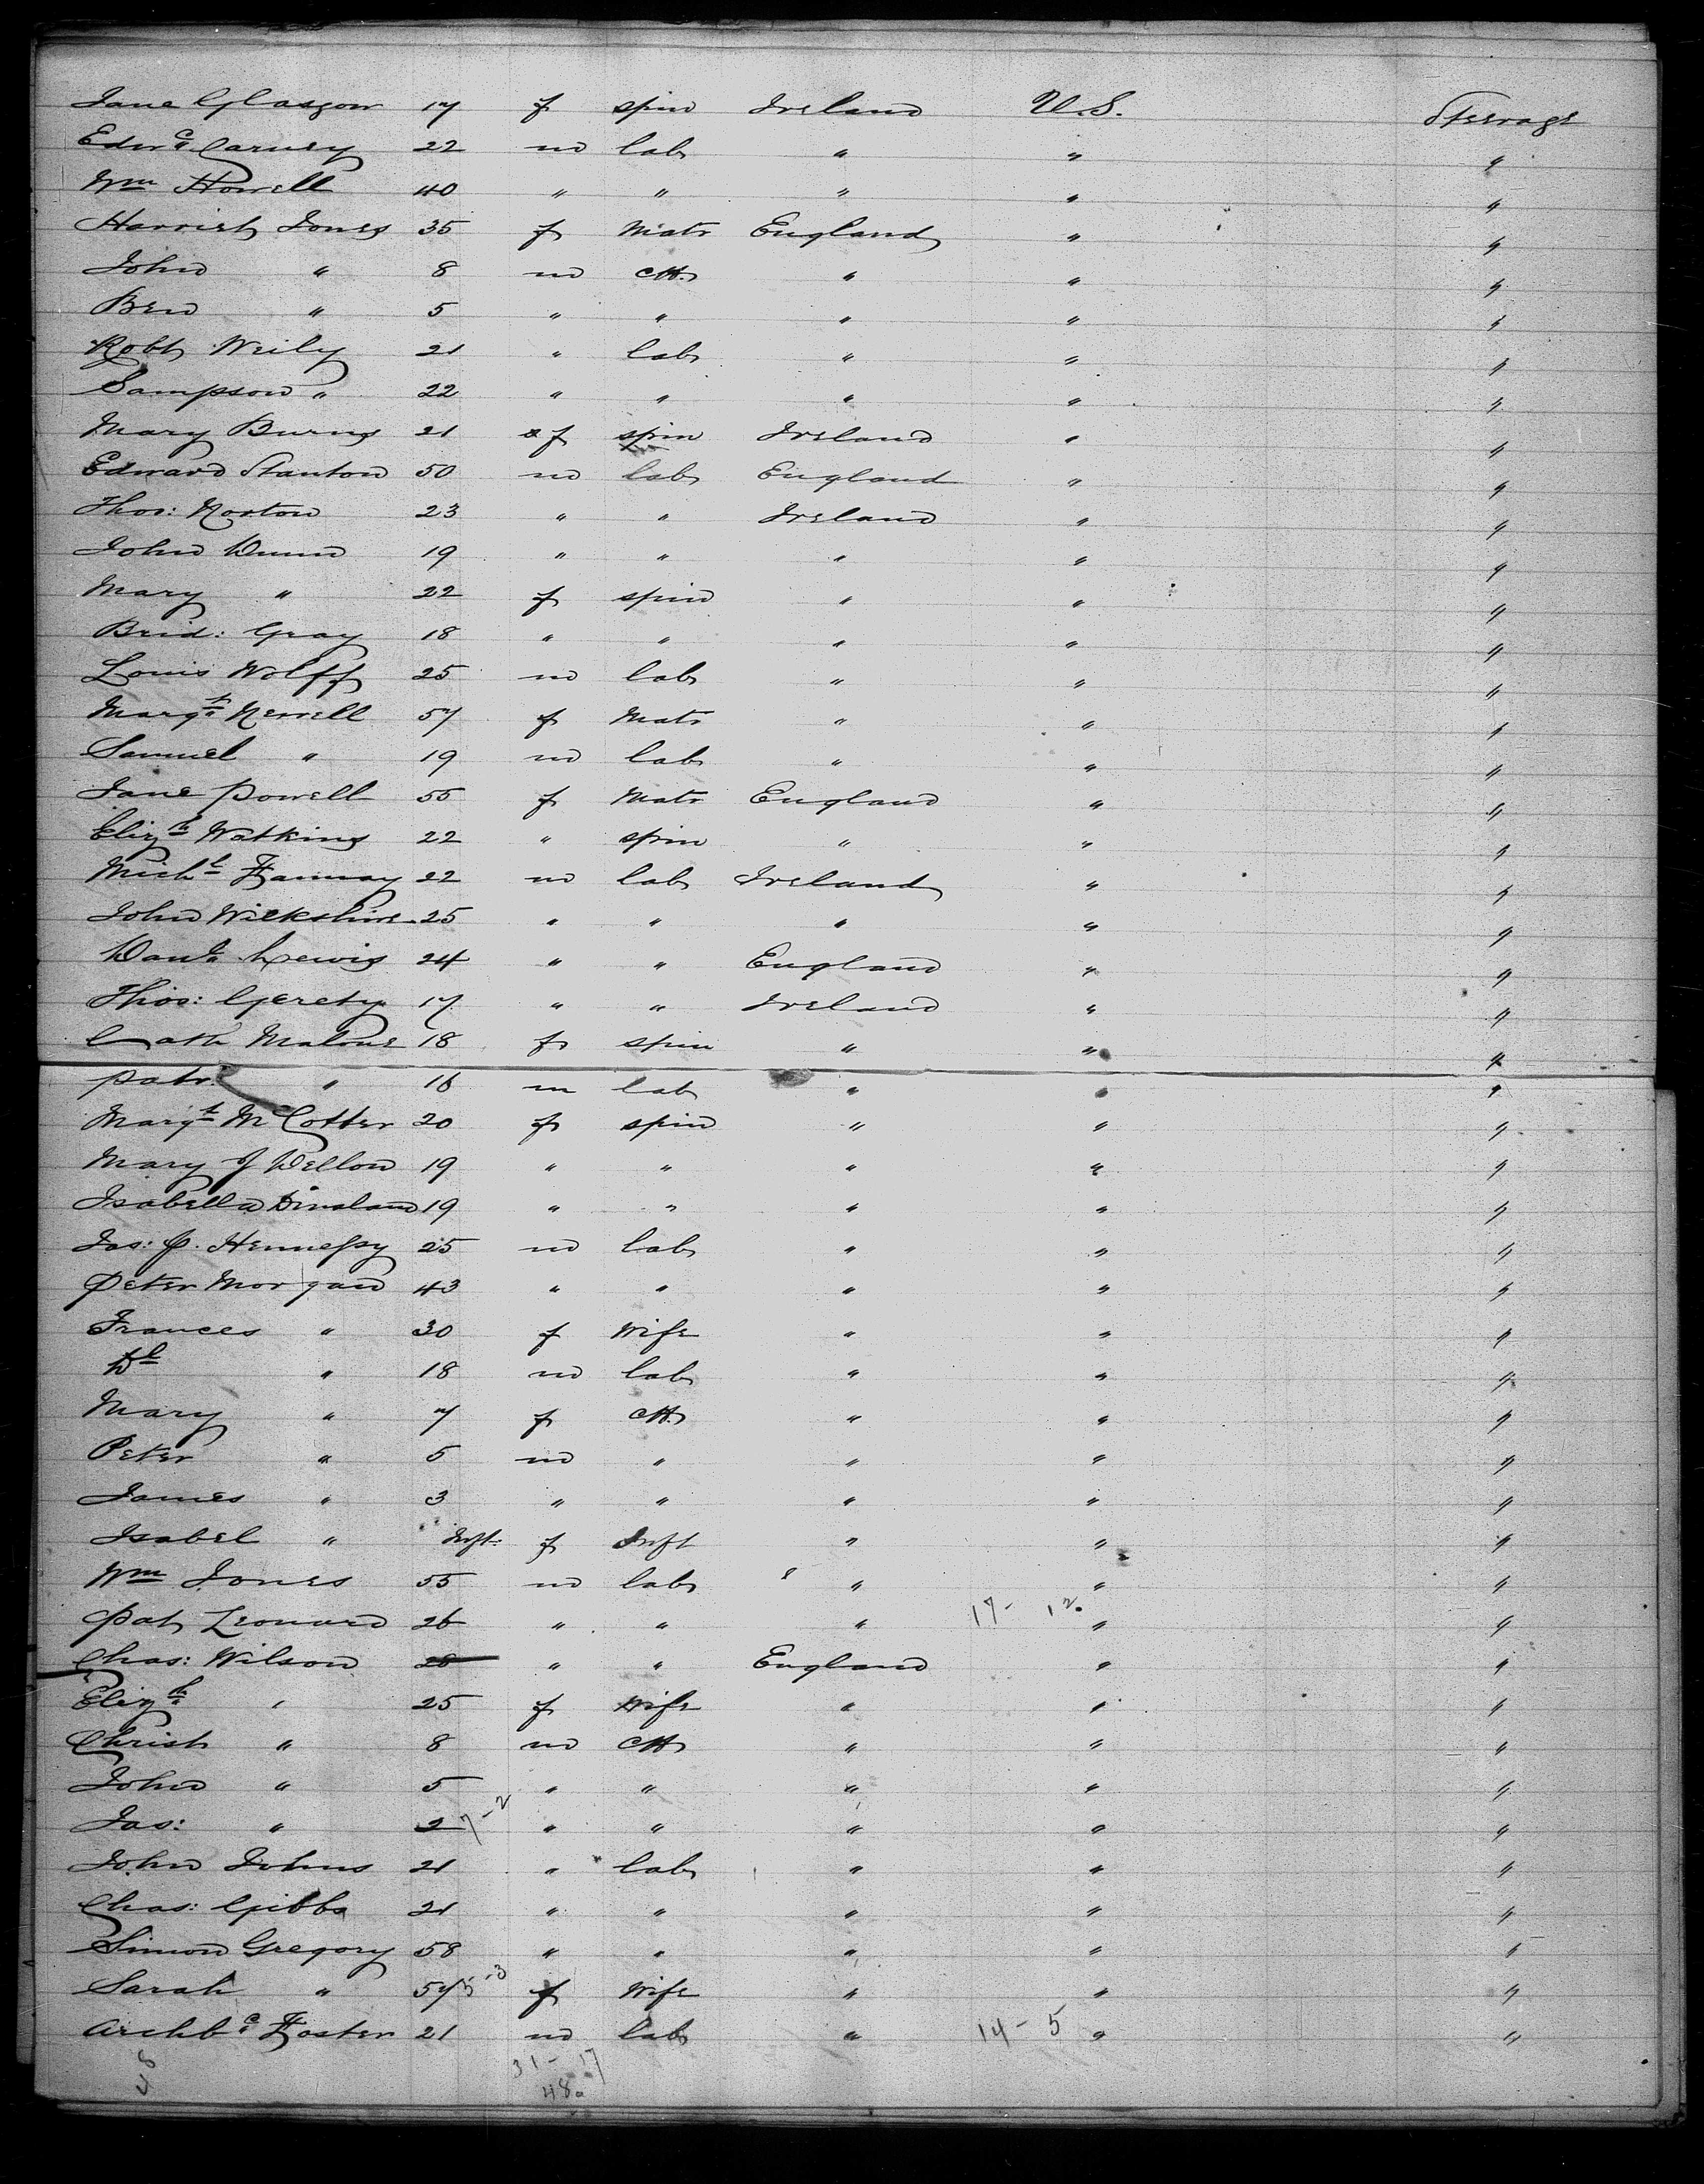 Jane Glasgow 17 f spin Ireland U.S. Steerage
Edwd Carney 22 m lab " " "
Wm Howell 40 " " " " "
Harriet Jones 35 f Matr England " "
John " 8 m Ch. " " "
Ben " 5 " " " " "
Robt Weily 21 " lab " " "
Sampson " 22 " " " " "
Mary Burns 21 f spin Ireland " "
Edward Stanton 50 m lab England " "
Thos: Norton 23 " " Ireland " "
John Dunn 19 " " " " "
Mary " 22 f spin " " "
Brid: Gray 18 " " " " "
Louis Wolff 25 m lab " " "
Margt Newell 57 f Matr " " "
Samuel " 19 m lab " " "
Jane Powell 55 f Matr England " "
Elizh Watkins 22 " spin " " "
Michl Fannay 22 m lab Ireland " "
John Wickshire 25 " " " " "
Danl Lewis 24 " " England " "
Thos: Gerety 17 " " Ireland " "
Cath Malone 18 f spin " " "
Patr: " 16 m lab " " "
Margt McCotter 20 f spin " " "
Mary J Dellon 19 " " " " "
Isabella 19 " " " " "
Jas: P. Hennessy 25 m lab " " "
Peter Morgan 43 " " " " "
Frances " 30 f Wife " " "
Dl " 18 m lab " " "
Mary " 7 f Ch " " "
Peter " 5 m " " " "
James " 3 " " " " "
Isabel " Inft: f Inft " " "
Wm Jones 55 m lab " " "
Pat Leonard 26 " " " 17- 12 " "
Chas: Wilson 28 " " England " "
Elizh " 25 f Wife " " "
Christ " 8 m Ch " " "
John " 5 " " " " "
Jas: " 2 7-2 " " " " "
John Johns 21 " lab " " "
Chas: Gibbs 21 " " " " "
Simon Gregory 58 " " " " "
Sarah " 57 5-3 f Wife " " "
Archbd Foster 21 m lab " 14-5 " "
48 31-17
48